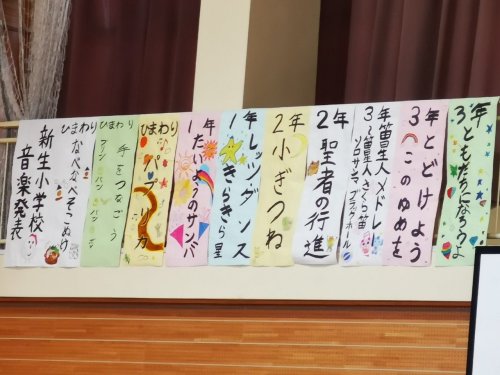 新生小学校
音楽発表
ひまわり
なべなべそこぬけ
ひまわり
手をつなごう
ひまわり
パプリカ
1年
たいようのサンバ
1年
レッツダンス
きらきら星
2年
小ぎつね
2年
聖者の行進
3年
笛星人メドレー
～笛星人 さくら笛
ブラックホール
3年
とどけよう
このゆめを
3年
ともだちになろうよ